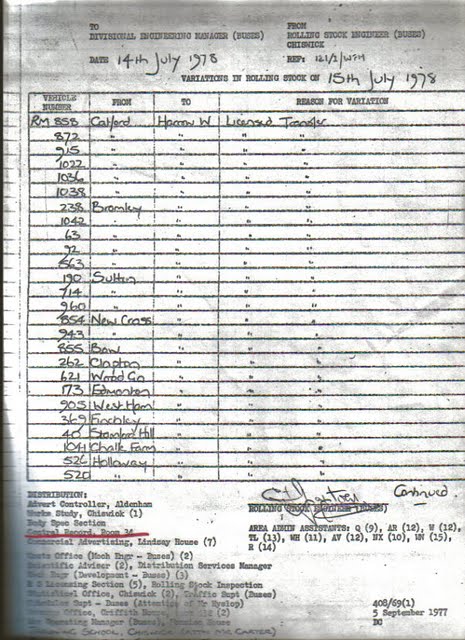 TO FROM
DIVISIONAL ENGINEERING MANAGER (BUSES) ROLLING STOCK ENGINEER (BUSES)
CHISWICK
DATE 14th July 1978 REF: 121/2/WFH
VARIATIONS IN ROLLING STOCK ON 15th July 1978
VEHICLE NUMBER FROM TO REASON FOR VARIATION
RM 858 Catford Harrow W Licensed Transfer
872 " " " "
915 " " " "
1022 " " " "
1036 " " " "
1038 " " " "
238 Bromley " " "
1042 " " " "
63 " " " "
92 " " " "
563 " " " "
190 Sutton " " "
714 " " " "
960 " " " "
854 New Cross " " "
943 " " " "
855 Bow " " "
262 Clapton " " "
621 Wood Gn " " "
173 Edmonton " " "
905 West Ham " " "
369 Finchley " " "
40 Stamford Hill " " "
1041 Chalk Farm " " "
526 Holloway " " "
520 " " " "
Continued
DISTRIBUTION: ROLLING STOCK ENGINEER (BUSES)
Advert Controller, Aldenham
Works Study, Chiswick (1)
Body Spec Section
Central Record, Room 34
Commercial Advertising, Lindsay House (7)
AREA ADMIN ASSISTANTS: Q (9), AR (12), W (12),
TL (13), WH (11), AV (12), NX (10), WN (15),
R (14)
Costs Office (Mech Engr - Buses) (2)
Scientific Adviser (2), Distribution Services Manager
Engr (Development - Buses) (3)
Licensing Section (5), Rolling Stock Inspection
Statistical Office, Chiswick (2), Traffic Supt (Buses)
Schedules Supt - Buses (Attention of Mr Hyslop)
Office, Griffith House (2)
Operating Manager (Buses), House
SCHOOL, CHISWICK (ATTN MR CARTER)
408/69(1)
5 September 1977
DG